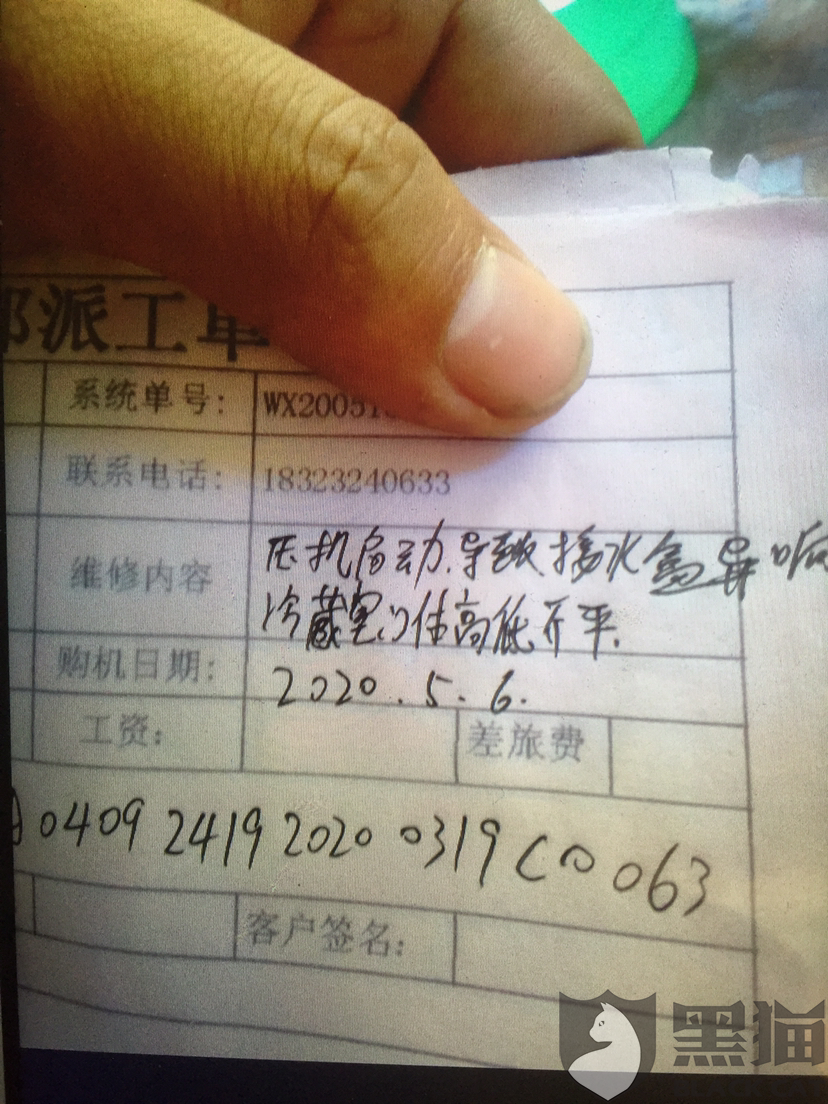 部派工单
系统单号: WX20051
联系电话: 18323240633
维修内容 压机启动.导致接水盒异响
冷藏室门体高低不平.
购机日期: 2020.5.6.
工资: 差旅费
0409 2419 2020 0319 C00063
客户签名:
黑猫